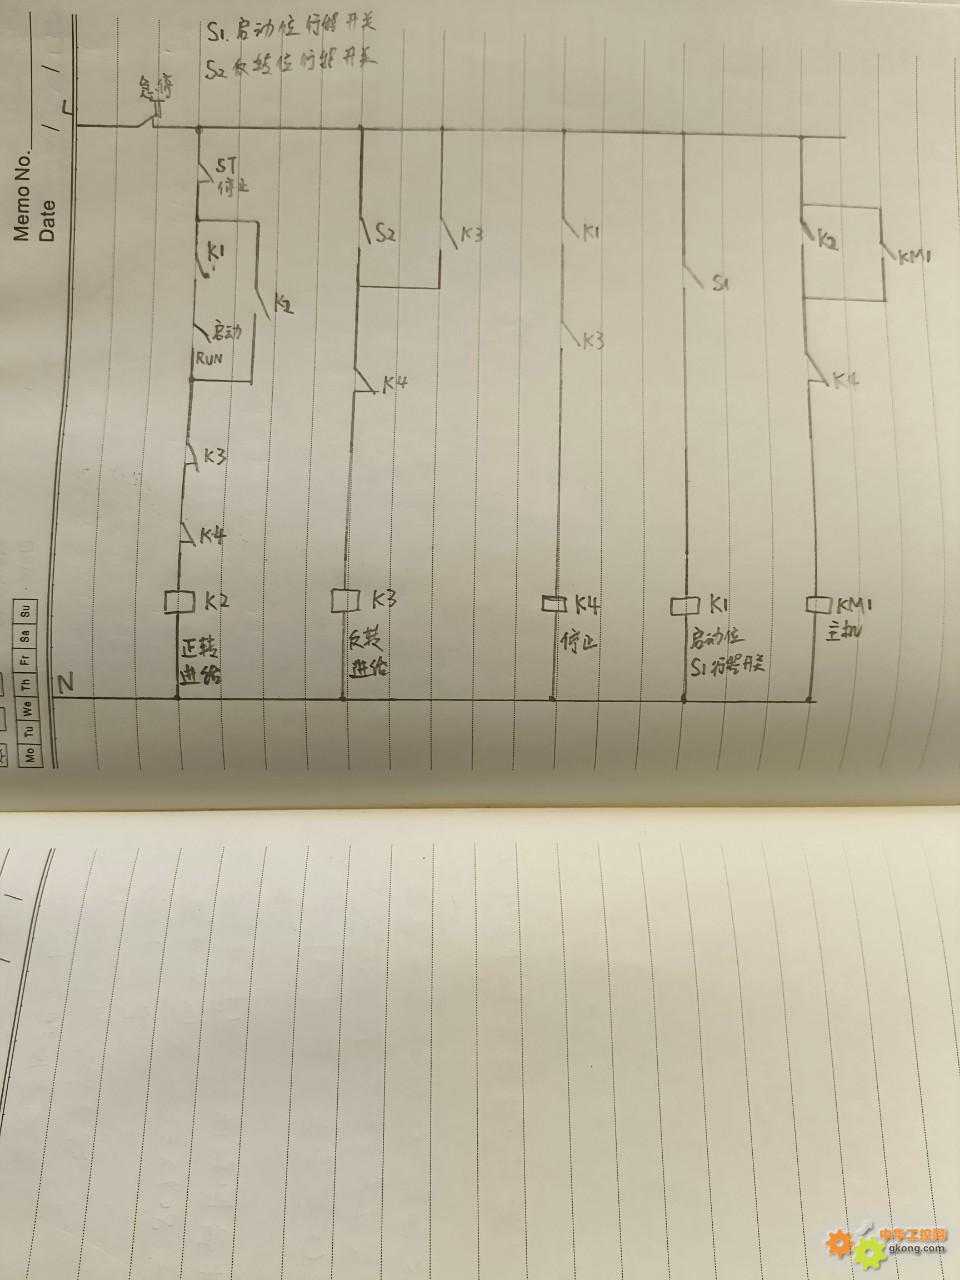 S1. 启动位行程开关
S2 反转位行程开关
Memo No.
Date / /
L
急停
ST
停止
K1
K2
启动
RUN
K3
K4
K2
正转
进给
S2
K3
K4
K3
反转
进给
K1
K3
K4
停止
S1
K1
启动位
S1行程开关
K2
KM1
K4
KM1
主机
N
Mo Tu We Th Fr Sa Su
中华工控网
gkong.com